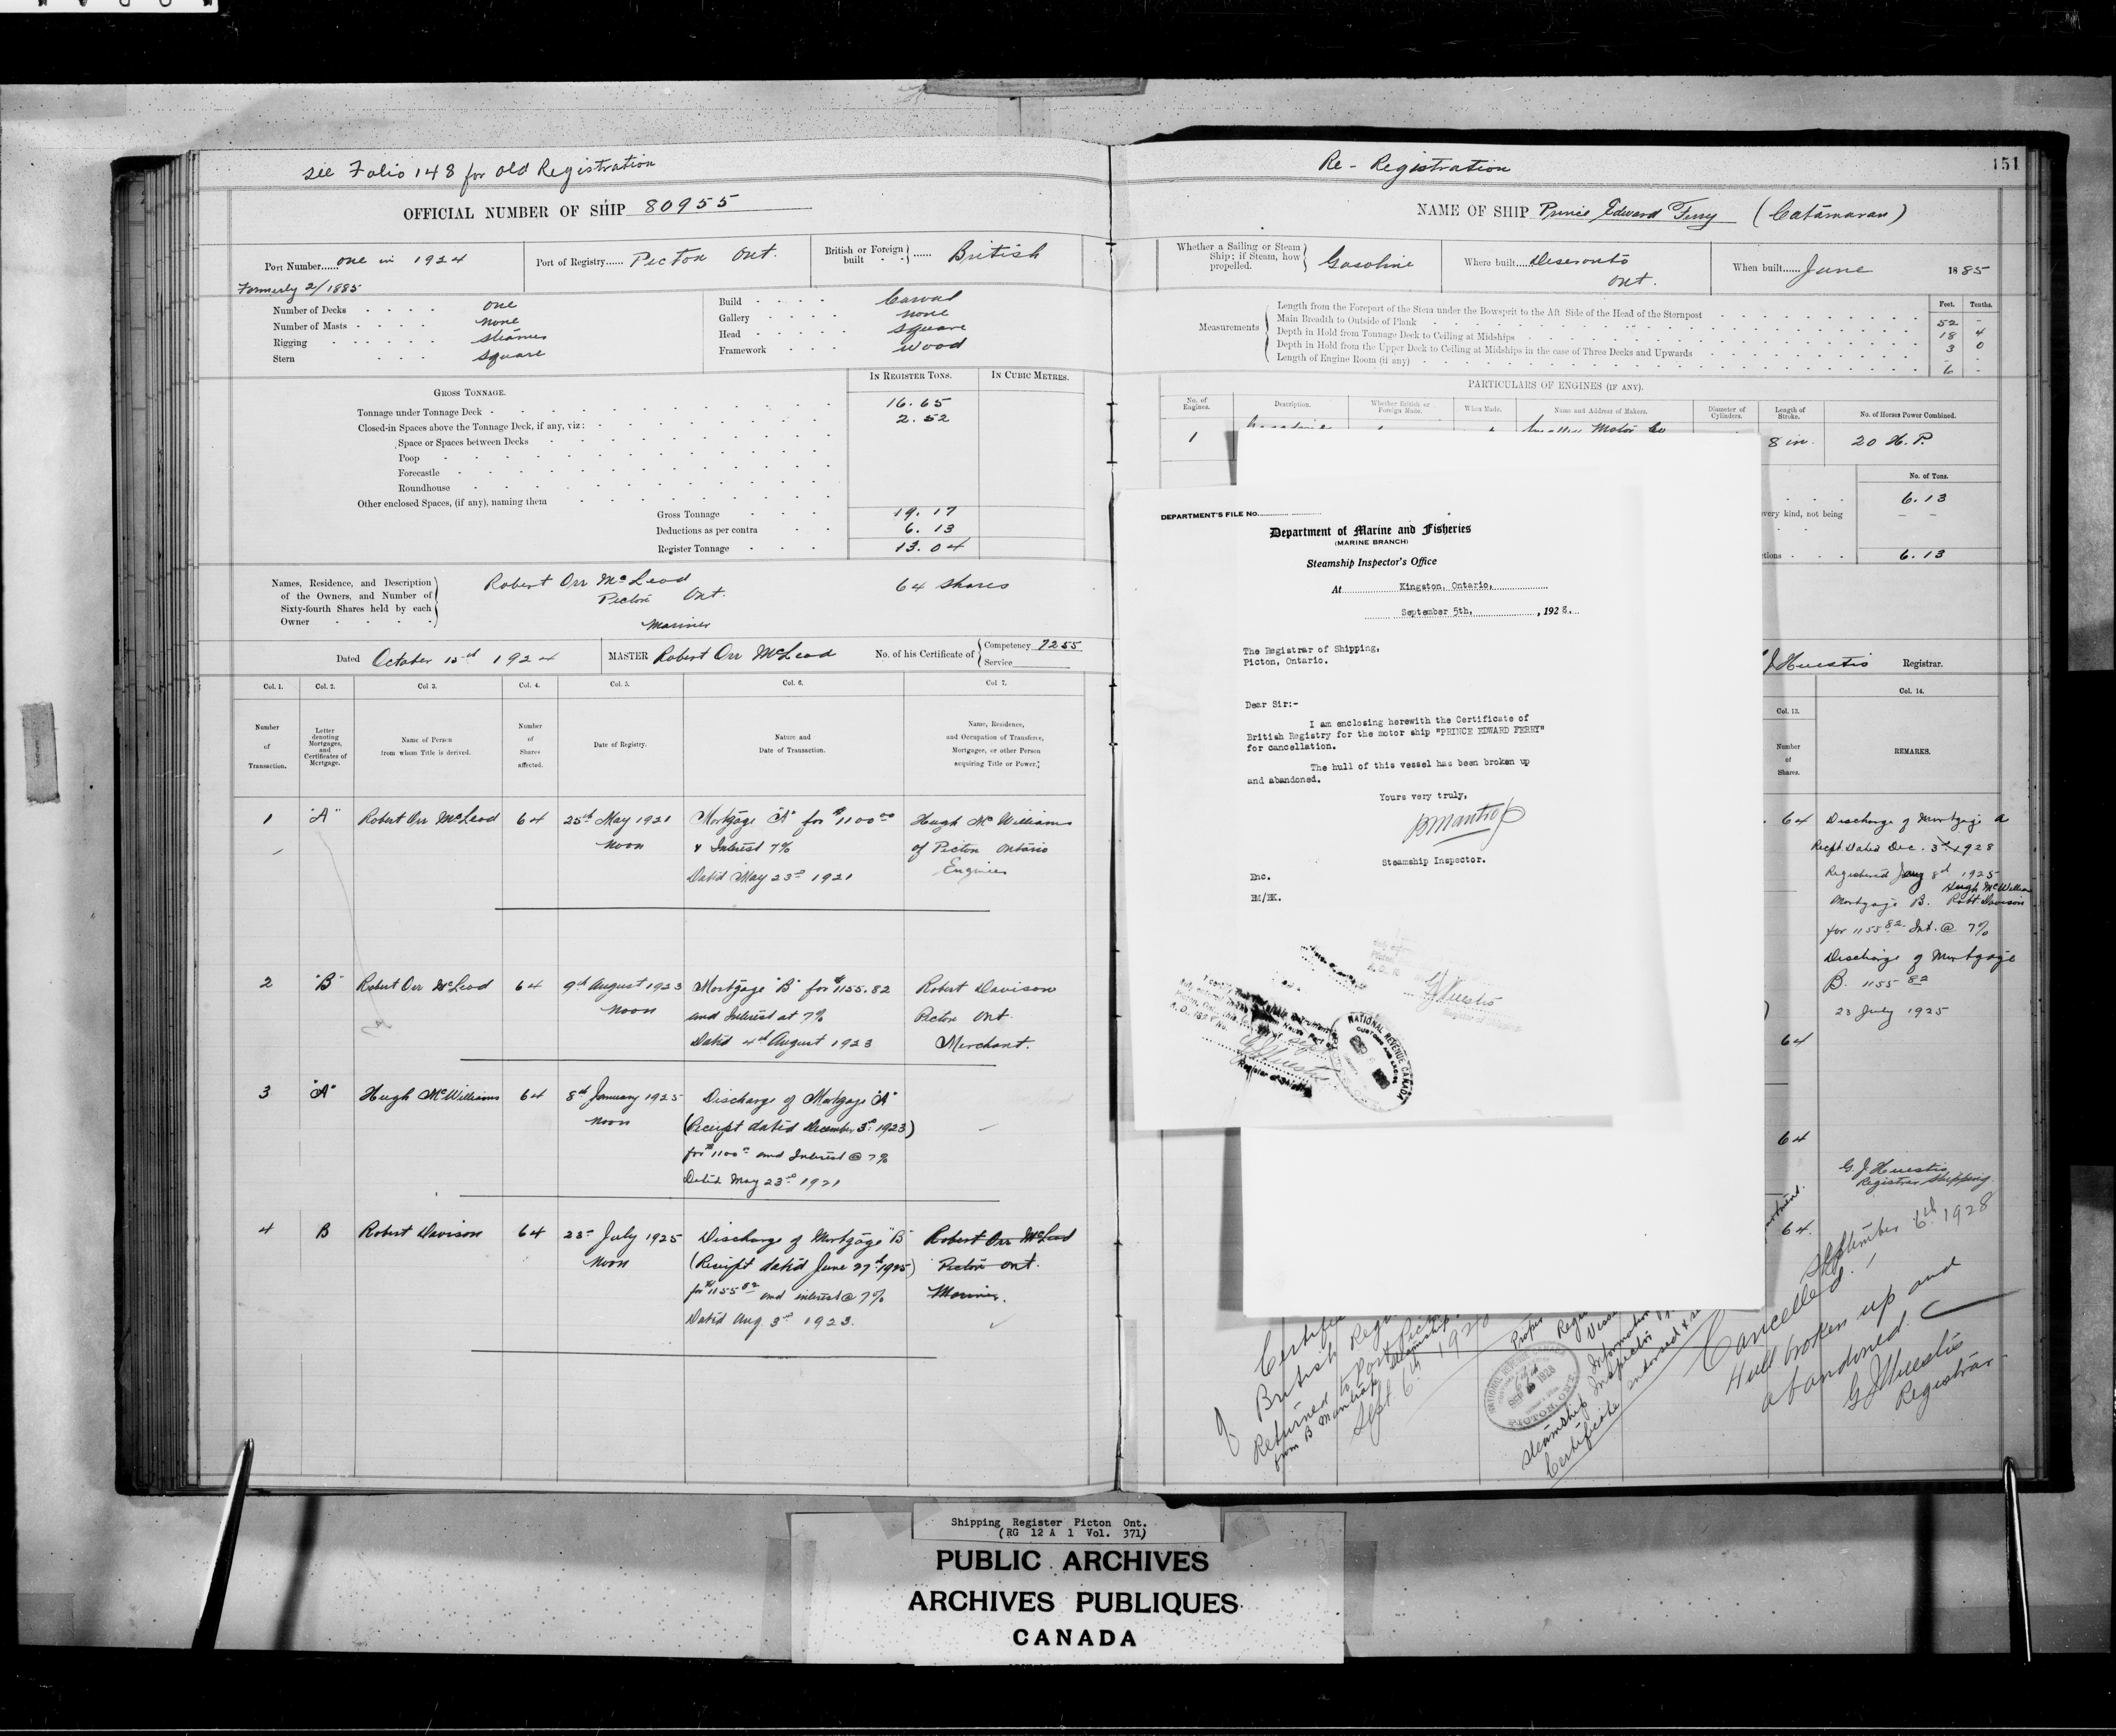 see Folio 148 for old Registration
OFFICIAL NUMBER OF SHIP 80955
Port Number...... one in 1924
Formerly 2/1885
Port of Registry...... Picton Ont.
British or Foreign built ...... British
Number of Decks one
Number of Masts none
Rigging steamer
Stern square
Build Carval
Gallery none
Head square
Framework wood
GROSS TONNAGE.
IN REGISTER TONS.
IN CUBIC METRES.
Tonnage under Tonnage Deck 16.65
Closed-in Spaces above the Tonnage Deck, if any, viz: 2.52
Space or Spaces between Decks
Poop
Forecastle
Roundhouse
Other enclosed Spaces, (if any), naming them
Gross Tonnage 19.17
Deductions as per contra 6.13
Register Tonnage 13.04
Names, Residence, and Description of the Owners, and Number of Sixty-fourth Shares held by each Owner
Robert Orr McLeod 64 shares
Picton Ont.
Mariner
Dated October 15th 1924
MASTER Robert Orr McLeod
No. of his Certificate of
Competency 7255
Service
Col. 1. Col. 2. Col 3. Col. 4. Col. 5. Col. 6. Col 7.
Number of Transaction.
Letter denoting Mortgages, and Certificates of Mortgage.
Name of Person from whom Title is derived.
Number of Shares affected.
Date of Registry.
Nature and Date of Transaction.
Name, Residence, and Occupation of Transferee, Mortgagee, or other Person acquiring Title or Power.
1 "A" Robert Orr McLeod 64 25th May 1921 Mortgage "A" for $1100 00 Hugh McWilliams
noon & Interest 7% of Picton Ontario
Dated May 23rd 1921 Engineer
2 "B" Robert Orr McLeod 64 9th August 1923 Mortgage "B" for $1155.82 Robert Davison
noon and Interest at 7% Picton Ont.
Dated 4th August 1923 Merchant.
3 "A" Hugh McWilliams 64 8th January 1925 Discharge of Mortgage "A"
noon (Receipt dated December 3rd 1923)
for $1100 and Interest @ 7%
Dated May 23rd 1921
4 B Robert Davison 64 23rd July 1925 Discharge of Mortgage "B" Robert Orr McLeod
noon (Receipt dated June 27th 1925) Picton Ont.
for $1155 82 and interest @ 7% Mariner.
Dated Aug. 3rd 1923.
Re-Registration
151
NAME OF SHIP Prince Edward Ferry (Catamaran)
Whether a Sailing or Steam Ship; if Steam, how propelled. Gasoline
Where built.... Deseronto Ont.
When built...... June 1885
Measurements
Feet. Tenths.
Length from the Forepart of the Stem under the Bowsprit to the Aft Side of the Head of the Sternpost 52 -
Main Breadth to Outside of Plank 18 4
Depth in Hold from Tonnage Deck to Ceiling at Midships 3 0
Depth in Hold from the Upper Deck to Ceiling at Midships in the case of Three Decks and Upwards -
Length of Engine Room (if any) 6 -
PARTICULARS OF ENGINES (IF ANY).
No. of Engines.
Description.
Whether British or Foreign Made.
When Made.
Name and Address of Makers.
Diameter of Cylinders.
Length of Stroke.
No. of Horses Power Combined.
1 Motor Co 8 in. 20 H.P.
No. of Tons.
6.13
every kind, not being
6.13
Huestis Registrar.
Col. 13. Col. 14.
Number of Shares.
REMARKS.
DEPARTMENT'S FILE NO.
Department of Marine and Fisheries
(MARINE BRANCH)
Steamship Inspector's Office
At Kingston, Ontario,
September 5th, , 1928.
The Registrar of Shipping,
Picton, Ontario.
Dear Sir:-
I am enclosing herewith the Certificate of
British Registry for the motor ship "PRINCE EDWARD FERRY"
for cancellation.
The hull of this vessel has been broken up
and abandoned.
Yours very truly,
Steamship Inspector.
Enc.
BM/EK.
NATIONAL REVENUE CANADA
CUSTOMS AND EXCISE
64 Discharge of Mortgage A
Recpt Dated Dec. 3rd 1928
Registered Jany 8th 1925
Hugh McWilliam
Mortgage B. Robt Davison
for 1155 82 Int. @ 7%
Discharge of Mortgage
B. 1155 82
23 July 1925
64
64
64
G. J. Huestis
Registrar Shipping
September 6th 1928
Cancelled.
Hull broken up and
abandoned.
G J Huestis
Registrar
British
Returned to Port Picton
from B Mantrop Steamship
Sept 6th 1928
PICTON, ONT.
Information
Steamship Inspector
Certificate endorsed
Shipping Register Picton Ont.
(RG 12 A 1 Vol. 371)
PUBLIC ARCHIVES
ARCHIVES PUBLIQUES
CANADA